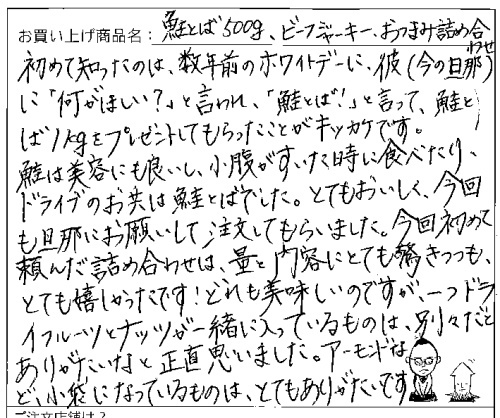 お買い上げ商品名：鮭とば500g、ビーフジャーキー、おつまみ詰め合わせ
初めて知ったのは、数年前のホワイトデーに、彼(今の旦那)
に「何がほしい？」と言われ、「鮭とば！」と言って、鮭と
ば1kgをプレゼントしてもらったことがキッカケです。
鮭は美容にも良いし、小腹がすいた時に食べたり、
ドライブのお供は鮭とばでした。とてもおいしく、今回
も旦那にお願いして注文してもらいました。今回初めて
頼んだ詰め合わせは、量と内容にとても驚きつつも、
とても嬉しかったです！どれも美味しいのですが、一つドラ
イフルーツとナッツが一緒に入っているものは、別々だと
ありがたいなと正直思いました。アーモンドな
ど、小袋になっているものは、とてもありがたいです
ご注文店舗は？